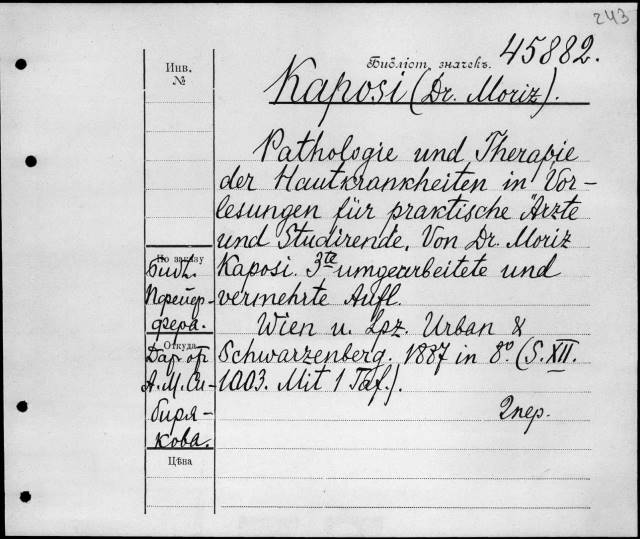 243
Библіот. значекъ. 45882.
Инв.
№
Kaposi (Dr. Moriz).
Pathologie und Therapie
der Hautkrankheiten in Vor-
lesungen für praktische Ärzte
und Studirende. Von Dr. Moriz
Kaposi. 3te umgearbeitete und
vermehrte Aufl.
Wien u. Lpz. Urban &
Schwarzenberg. 1887 in 8º. (S. XII.
1003. Mit 1 Taf.).
2 пер.
По заказу
Библ.
Пфейер-
фера.
Откуда
Дар. от
А. М. Си-
биря-
кова.
Цѣна